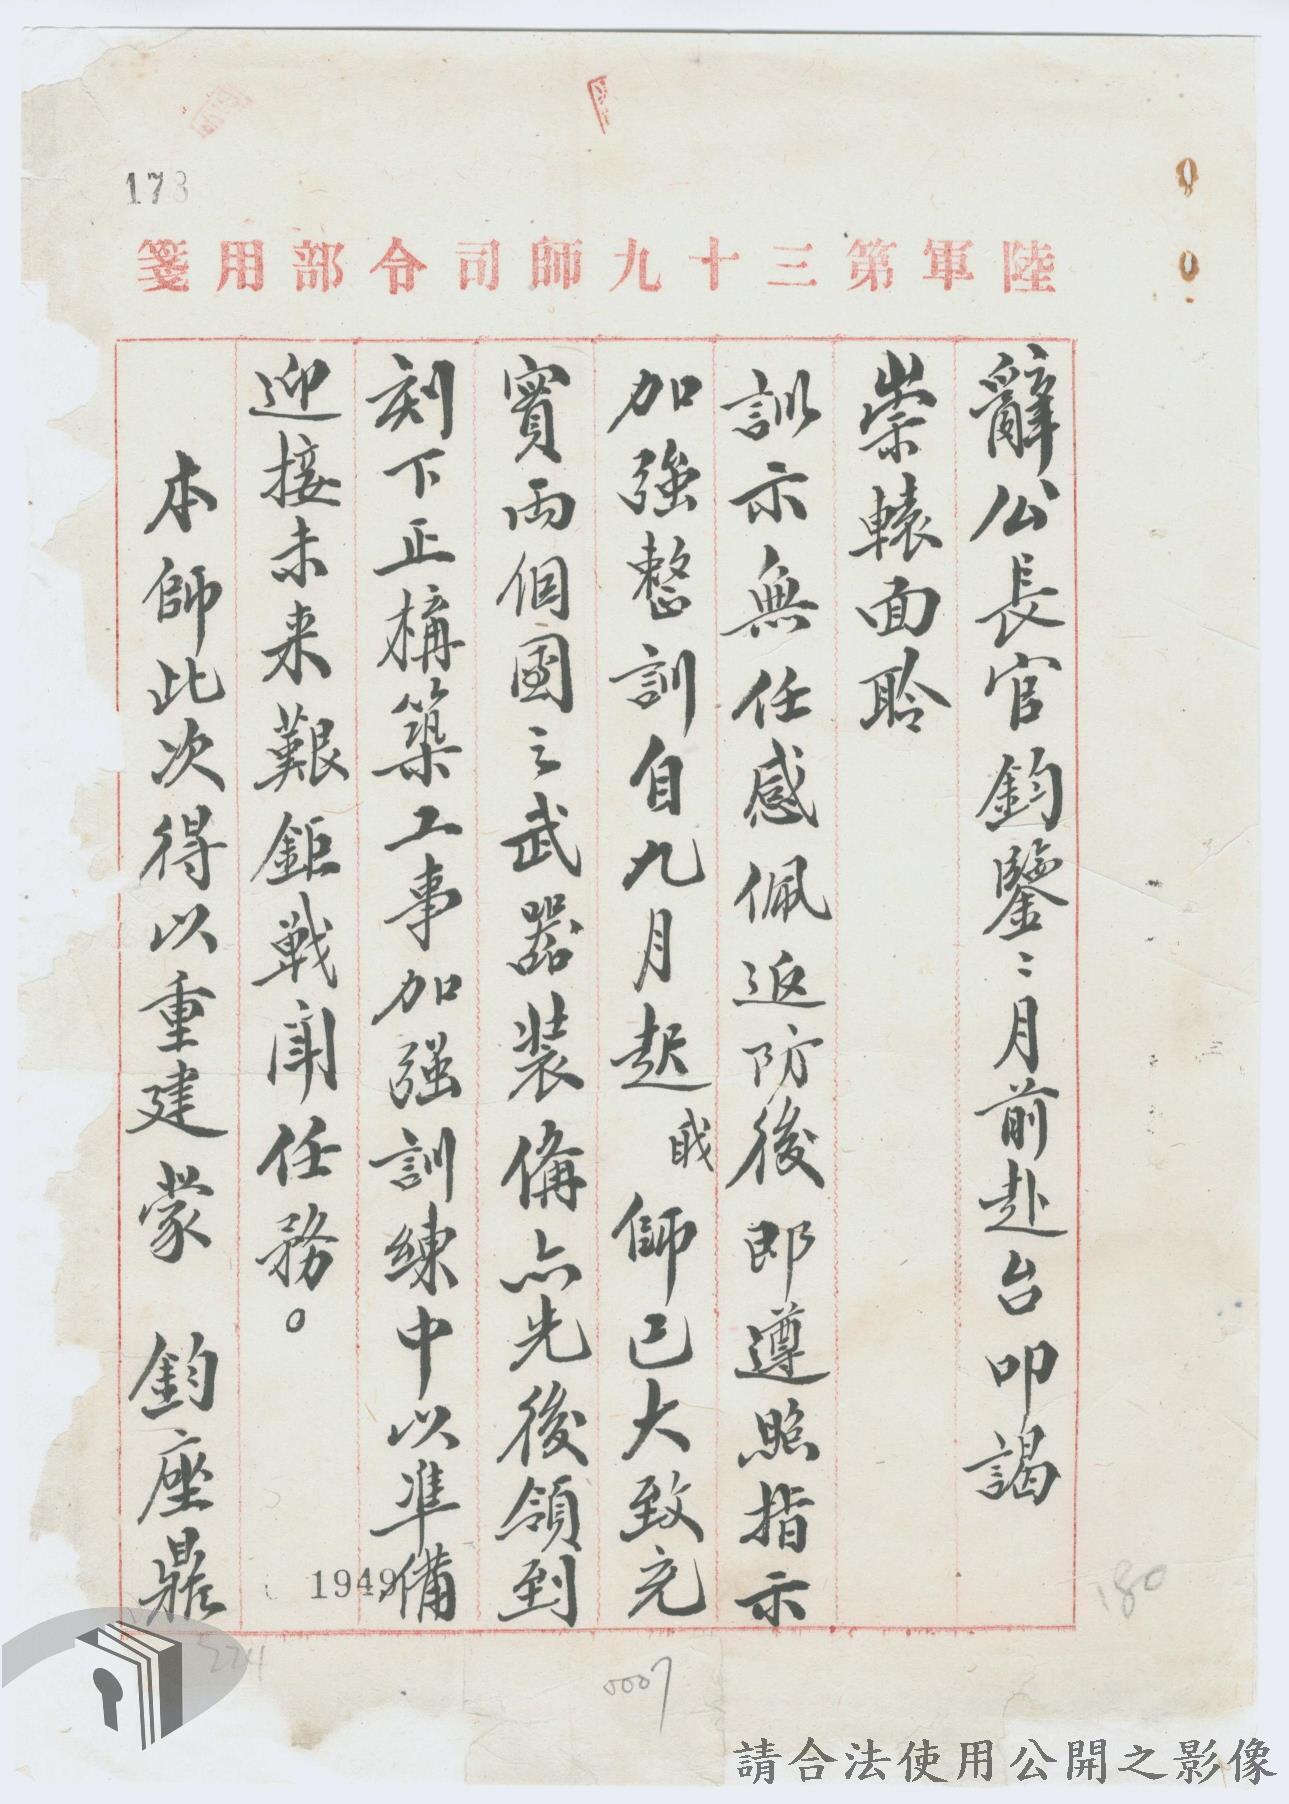 陸軍第三十九師司令部用箋
辭公長官鈞鑒：月前赴台叩謁
崇轅面聆
訓示無任感佩返防後即遵照指示
加強整訓自九月起職師已大致充
實兩個團之武器裝備亦先後領到
刻下正構築工事加强訓練中以準備
迎接未来艱鉅戰鬥任務。
本師此次得以重建蒙 鈞座鼎
1949
180
0007
224
請合法使用公開之影像